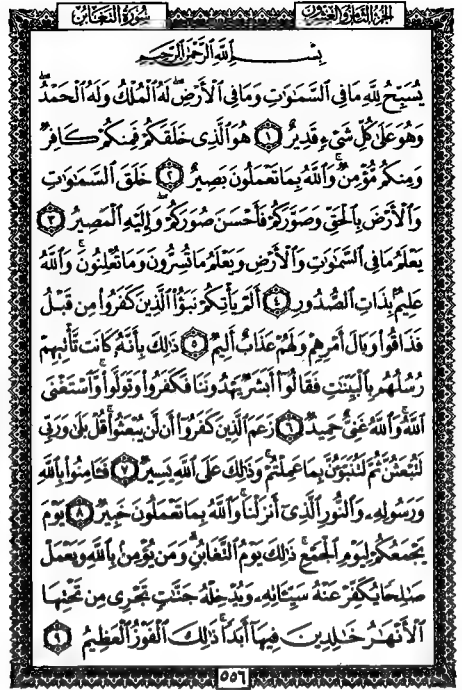 سُورَةُ التَّغَابُنِ الجزء الثامن والعشرون
بِسْمِ ٱللَّهِ ٱلرَّحْمَٰنِ ٱلرَّحِيمِ
يُسَبِّحُ لِلَّهِ مَا فِي ٱلسَّمَٰوَٰتِ وَمَا فِي ٱلْأَرْضِۖ لَهُ ٱلْمُلْكُ وَلَهُ ٱلْحَمْدُۖ
وَهُوَ عَلَىٰ كُلِّ شَيْءٍ قَدِيرٌ ١ هُوَ ٱلَّذِي خَلَقَكُمْ فَمِنكُمْ كَافِرٌ
وَمِنكُم مُّؤْمِنٌۚ وَٱللَّهُ بِمَا تَعْمَلُونَ بَصِيرٌ ٢ خَلَقَ ٱلسَّمَٰوَٰتِ
وَٱلْأَرْضَ بِٱلْحَقِّ وَصَوَّرَكُمْ فَأَحْسَنَ صُوَرَكُمْۖ وَإِلَيْهِ ٱلْمَصِيرُ ٣
يَعْلَمُ مَا فِي ٱلسَّمَٰوَٰتِ وَٱلْأَرْضِ وَيَعْلَمُ مَا تُسِرُّونَ وَمَا تُعْلِنُونَۚ وَٱللَّهُ
عَلِيمٌۢ بِذَاتِ ٱلصُّدُورِ ٤ أَلَمْ يَأْتِكُمْ نَبَؤُا۟ ٱلَّذِينَ كَفَرُوا۟ مِن قَبْلُ
فَذَاقُوا۟ وَبَالَ أَمْرِهِمْ وَلَهُمْ عَذَابٌ أَلِيمٌ ٥ ذَٰلِكَ بِأَنَّهُۥ كَانَت تَّأْتِيهِمْ
رُسُلُهُم بِٱلْبَيِّنَٰتِ فَقَالُوٓا۟ أَبَشَرٌ يَهْدُونَنَا فَكَفَرُوا۟ وَتَوَلَّوا۟ۚ وَّٱسْتَغْنَى
ٱللَّهُۚ وَٱللَّهُ غَنِيٌّ حَمِيدٌ ٦ زَعَمَ ٱلَّذِينَ كَفَرُوٓا۟ أَن لَّن يُبْعَثُوا۟ۚ قُلْ بَلَىٰ وَرَبِّي
لَتُبْعَثُنَّ ثُمَّ لَتُنَبَّؤُنَّ بِمَا عَمِلْتُمْۚ وَذَٰلِكَ عَلَى ٱللَّهِ يَسِيرٌ ٧ فَـَٔامِنُوا۟ بِٱللَّهِ
وَرَسُولِهِۦ وَٱلنُّورِ ٱلَّذِيٓ أَنزَلْنَاۚ وَٱللَّهُ بِمَا تَعْمَلُونَ خَبِيرٌ ٨ يَوْمَ
يَجْمَعُكُمْ لِيَوْمِ ٱلْجَمْعِۖ ذَٰلِكَ يَوْمُ ٱلتَّغَابُنِۗ وَمَن يُؤْمِنۢ بِٱللَّهِ وَيَعْمَلْ
صَٰلِحًا يُكَفِّرْ عَنْهُ سَيِّـَٔاتِهِۦ وَيُدْخِلْهُ جَنَّٰتٍ تَجْرِي مِن تَحْتِهَا
ٱلْأَنْهَٰرُ خَٰلِدِينَ فِيهَآ أَبَدًاۚ ذَٰلِكَ ٱلْفَوْزُ ٱلْعَظِيمُ ٩
٥٥٦